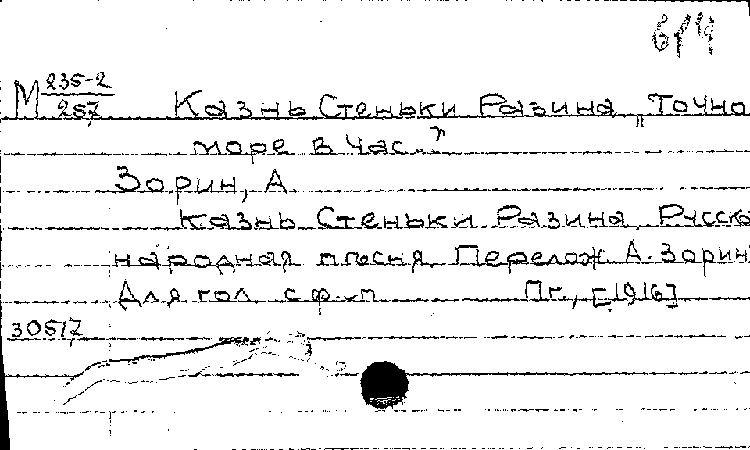 М 235-2/257 Казнь Стеньки Разина „Точно
море в час..."
Зорин, А.
Казнь Стеньки Разина. Русска
народная пѣсня. Перелож. А. Зорин
Для гол. с ф.-п. Пг., [1916]
30517